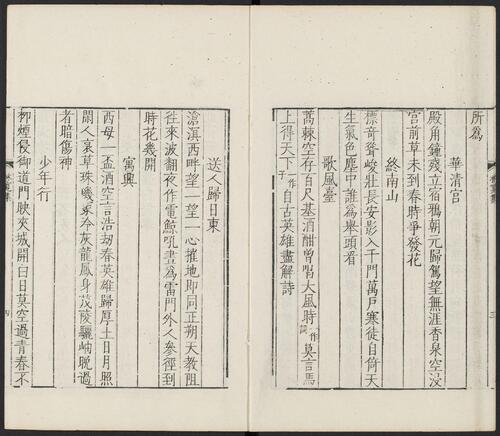 所爲
華清宫
殿角鐘殘立宿鴉朝元歸駕望無涯香泉空浸
宫前草未到春時爭發花
終南山
標奇聳峻壯長安影入千門萬戸寒徒自倚天
生氣色塵中誰爲舉頭看
歌風臺
蒿棘空存百尺基酒酣曾唱大風時作詞莫言馬
上得天下作子自古英雄盡解詩
送人歸日東
滄溟西畔望一望一心摧地即同正朔天教阻
徃來波翻夜作電鯨吼晝爲雷門外人參徑到
時花幾開
寓興
西母一盃酒空言浩刼春英雄歸厚土日月照
閑人衰草珠璣冢冷灰龍鳳身茂陵驪岫晚過
者暗傷神
少年行
柳煙侵御道門映夾城開白日莫空過青春不
三
四